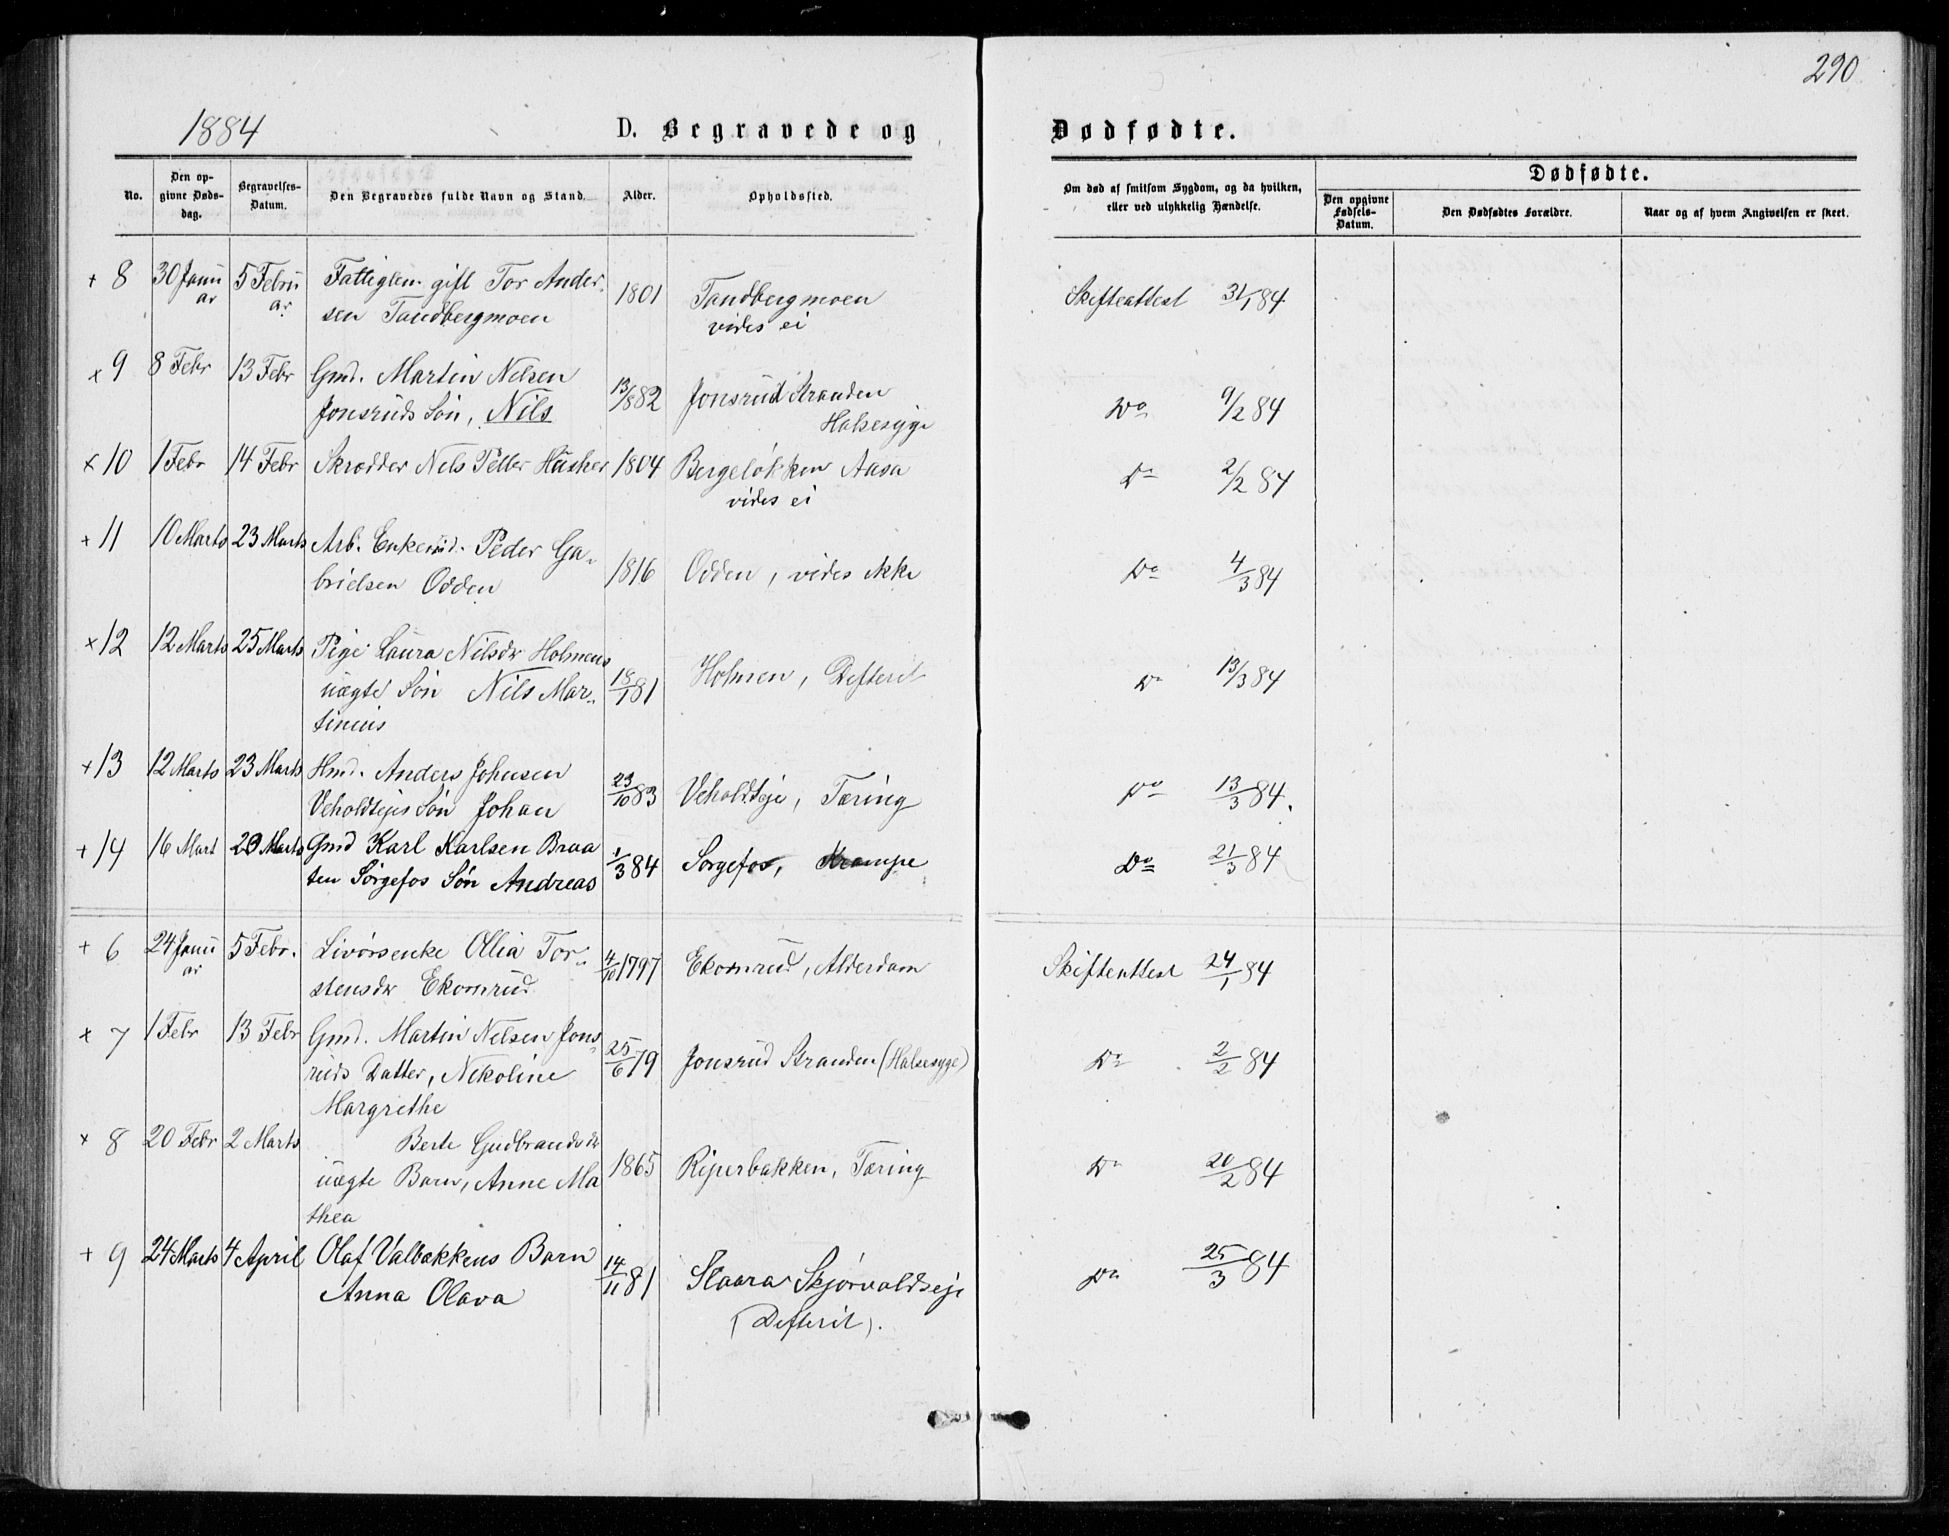 290
1884
D. Begravede og
Dødfødte.
No.
Den op-
givne Døds-
dag.
Begravelses-
Datum.
Den Begravedes fulde Navn og Stand.
Alder.
Opholdssted.
Om død af smitsom Sygdom, og da hvilken,
eller ved ulykkelig Hændelse.
Dødfødte.
Den opgivne
Fødsels-
Datum.
Den Dødfødtes Forældre.
Naar og af hvem Angivelsen er skeet.
+ 8 30 Janu 5 Febru Fattiglem gift Tor Ander- 1801 Tandbergmoen Skifteattest 31/1 84
ar ar sen Tandbergmoen vides ei
x 9 8 Febr 13 Febr Gmd. Martin Nelsen 13/8 82 Jonsrud Stranden Do 9/2 84
Jonsruds Søn, Nils Halsesyge
x 10 1 Febr 14 Febr Skrædder Nels Petter Husher 1804 Bergeløkken Aasa Do 2/2 84
vides ei
+ 11 10 Marts 23 Marts Arb. Enkemd. Peder Ga- 1816 Odden, vides ikke Do 4/3 84
brielsen Odden
x 12 12 Marts 25 Marts Pige Laura Nilsdr Holmens 18/1 81 Holmen, Defterit Do 13/3 84
uægte Søn Nils Mar-
tinius
+ 13 12 Marts 23 Marts Hmd. Anders Johnsen 23/10 83 Veholdteje, Tæring Do 13/3 84.
Veholdtejes Søn Johan
+ 14 16 Mart 20 Marts Gmd Karl Karlsen Braa 1/3 84 Sørgefos, Krampe Do 21/3 84
ten Sørgefos Søn Andreas
+ 6 24 Janu 5 Febr. Livørsenke Ollia Tor- 4/10 1797 Ekornrud, Alderdom Skifteattest 24/1 84
ar stensdr Ekornrud
x 7 1 Febr 13 Febr Gmd. Martin Nelsen Jons- 25/6 79 Jonsrud Stranden (Halsesyge) Do 2/2 84
ruds Datter, Nekoline
Margrethe
x 8 20 Febr 2 Marts Berte Gudbrandsdr 1865 Riperbakken, Tæring Do 20/2 84
uægte Barn, Anne Ma
thea
+ 9 24 Marts 4 April Olaf Valbakkens Barn 14/11 81 Staara Skjørvoldseje Do 25/3 84
Anna Olava (Defterit).